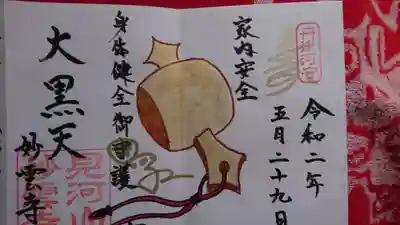 令和二年
五月二十九日
家内安全
身体健全御守護
大黒天
妙雲寺